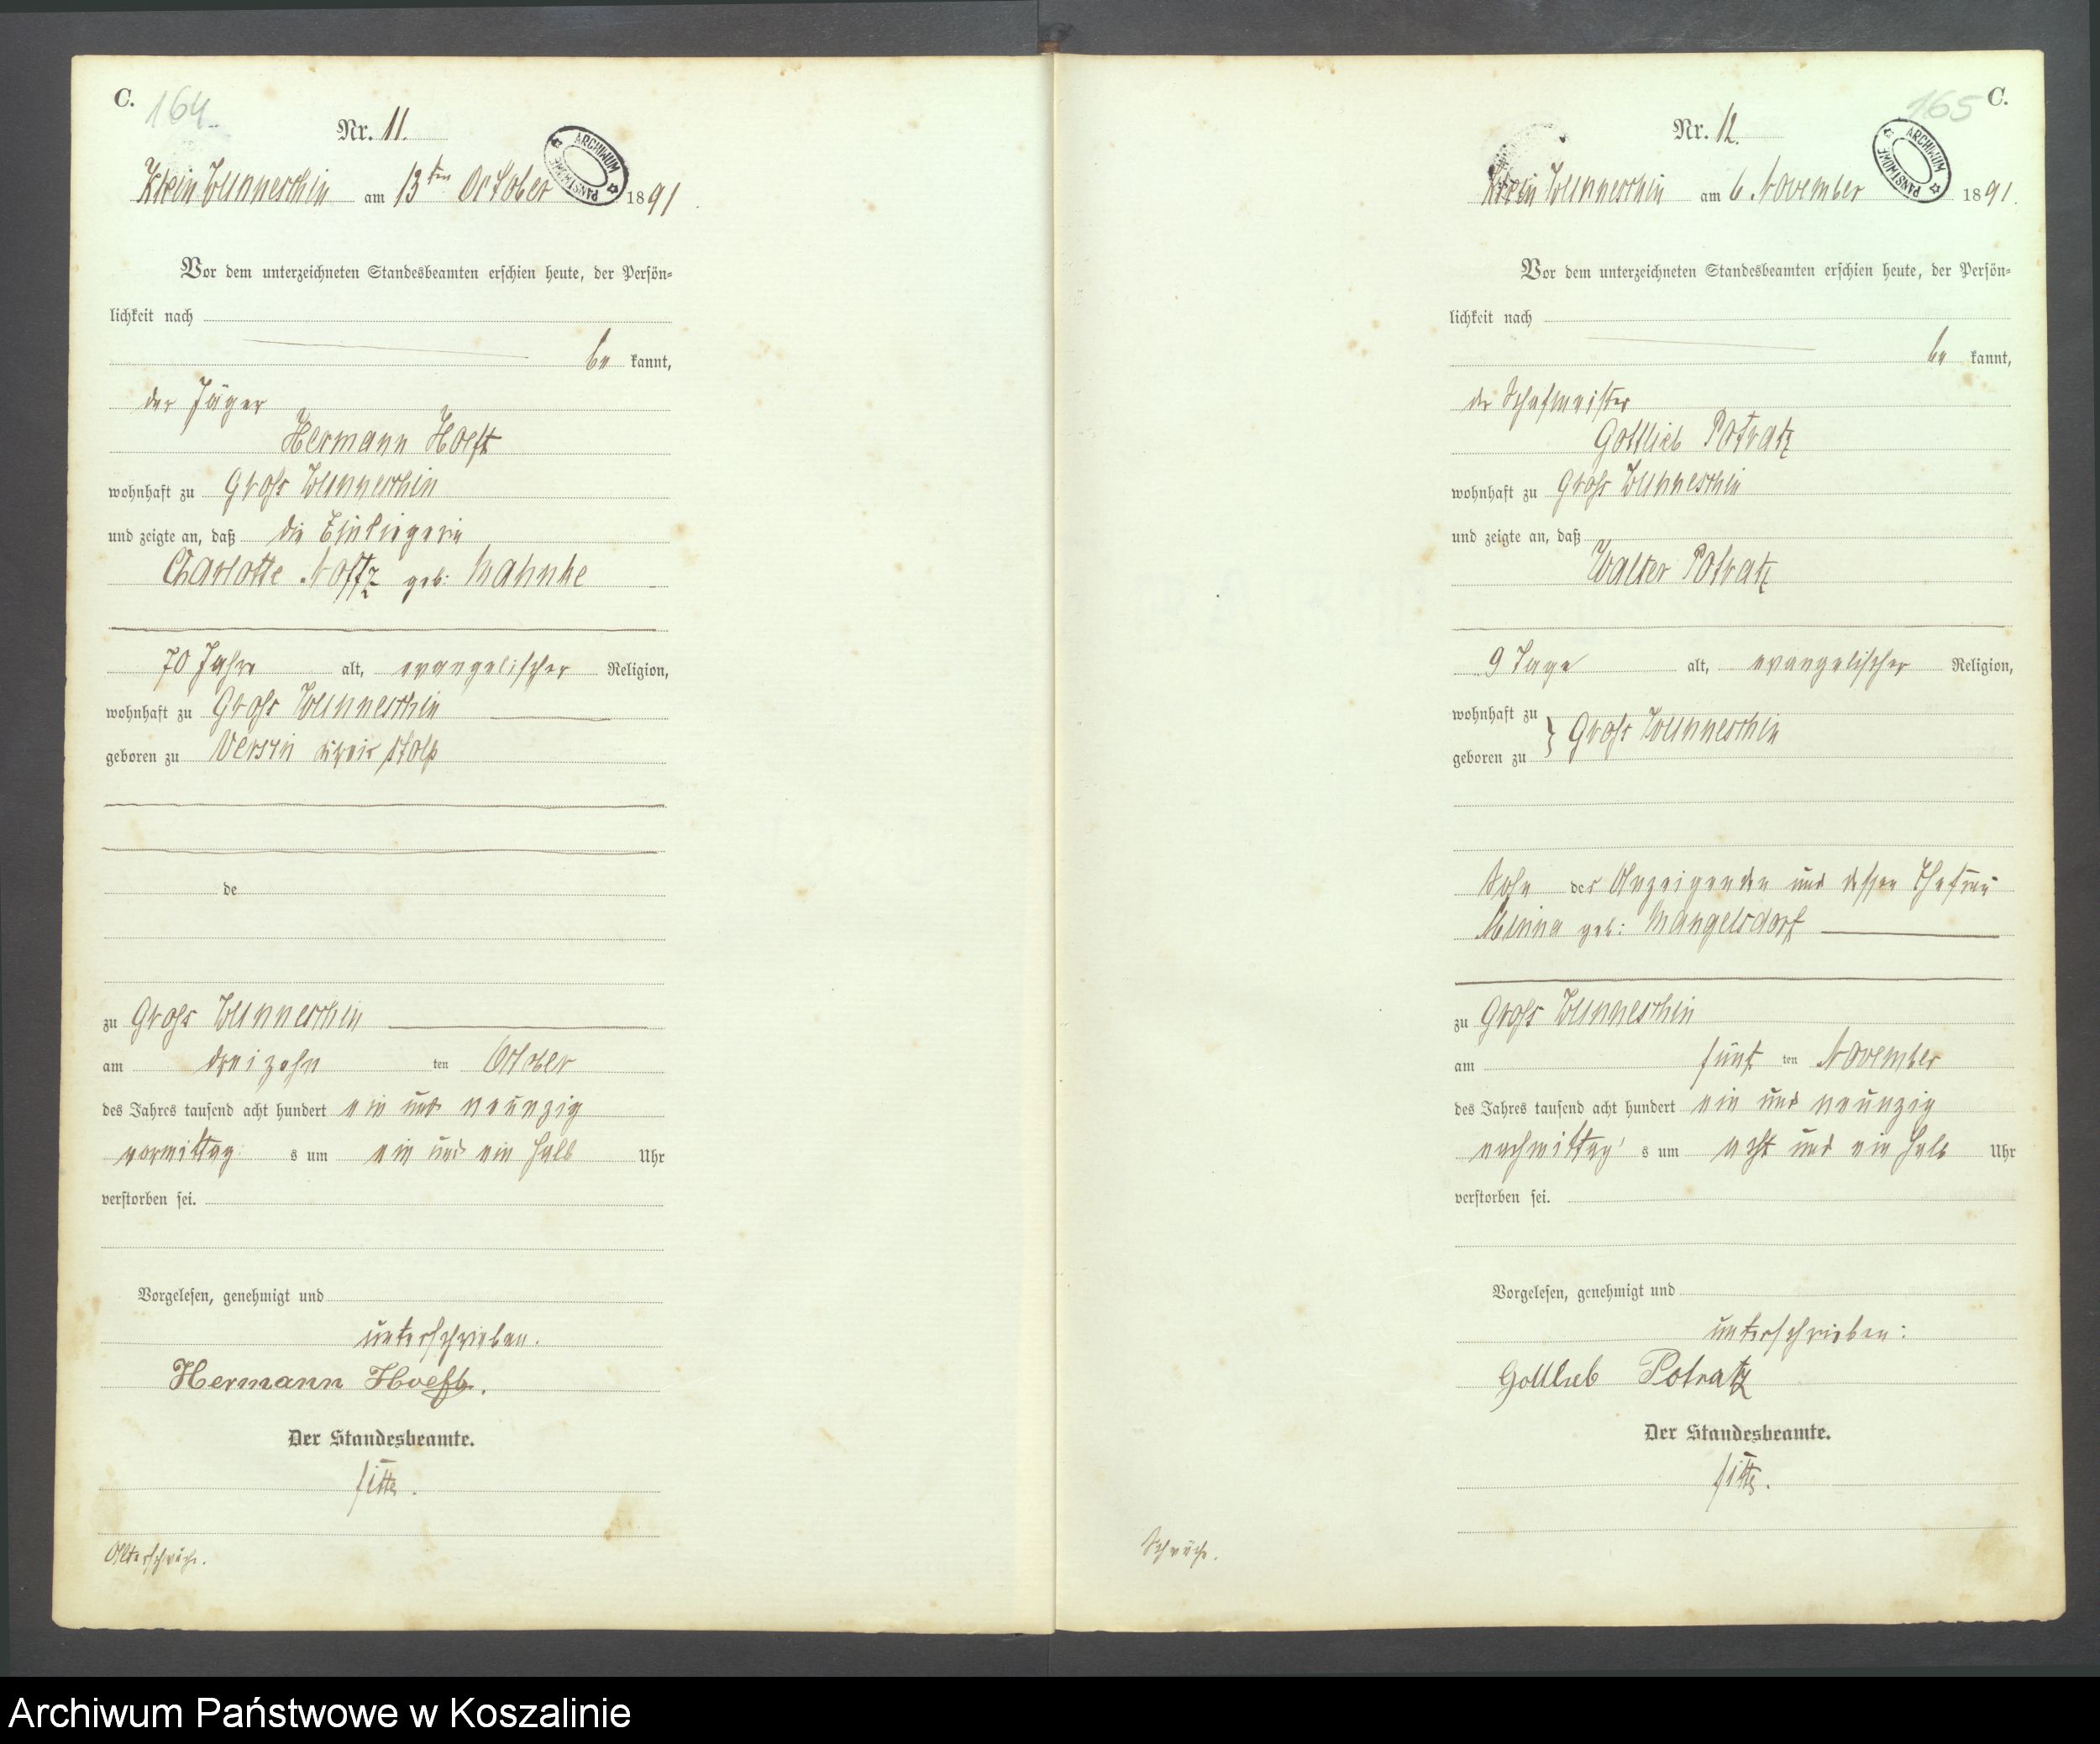 C. 164.
Nr. 11.
ARCHIWUM PAŃSTWOWE
Klein Wunneschin am 13ten October 1891
Vor dem unterzeichneten Standesbeamten erschien heute, der Persön-
lichkeit nach
be kannt,
der Jäger
Hermann Hoeft
wohnhaft zu Gross Wunneschin
und zeigte an, daß die Einliegerin
Charlotte geb: Mahnke
70 Jahre alt, evangelischer Religion,
wohnhaft zu Gross Wunneschin
geboren zu Versin Kreis Stolp
de
zu Gross Wunneschin
am dreizehn ten October
des Jahres tausend acht hundert ein und neunzig
vormittag s um ein und ein halb Uhr
verstorben sei.
Vorgelesen, genehmigt und
unterschrieben.
Hermann Hoeft.
Der Standesbeamte.
Altersschwäche.
165 C.
Nr. 12.
ARCHIWUM PAŃSTWOWE
Klein Wunneschin am 6. November 1891.
Vor dem unterzeichneten Standesbeamten erschien heute, der Persön-
lichkeit nach
be kannt,
der Schafmeister
Gottlieb Potratz
wohnhaft zu Gross Wunneschin
und zeigte an, daß
Walter Potratz
9 Tage alt, evangelischer Religion,
wohnhaft zu
geboren zu } Gross Wunneschin
Sohn des Anzeigenden und dessen Ehefrau
Minna geb: Mangelsdorf
zu Gross Wunneschin
am fünf ten November
des Jahres tausend acht hundert ein und neunzig
nachmittag s um acht und ein halb Uhr
verstorben sei.
Vorgelesen, genehmigt und
unterschrieben:
Gottlieb Potratz
Der Standesbeamte.
Schwäche.
Archiwum Państwowe w Koszalinie